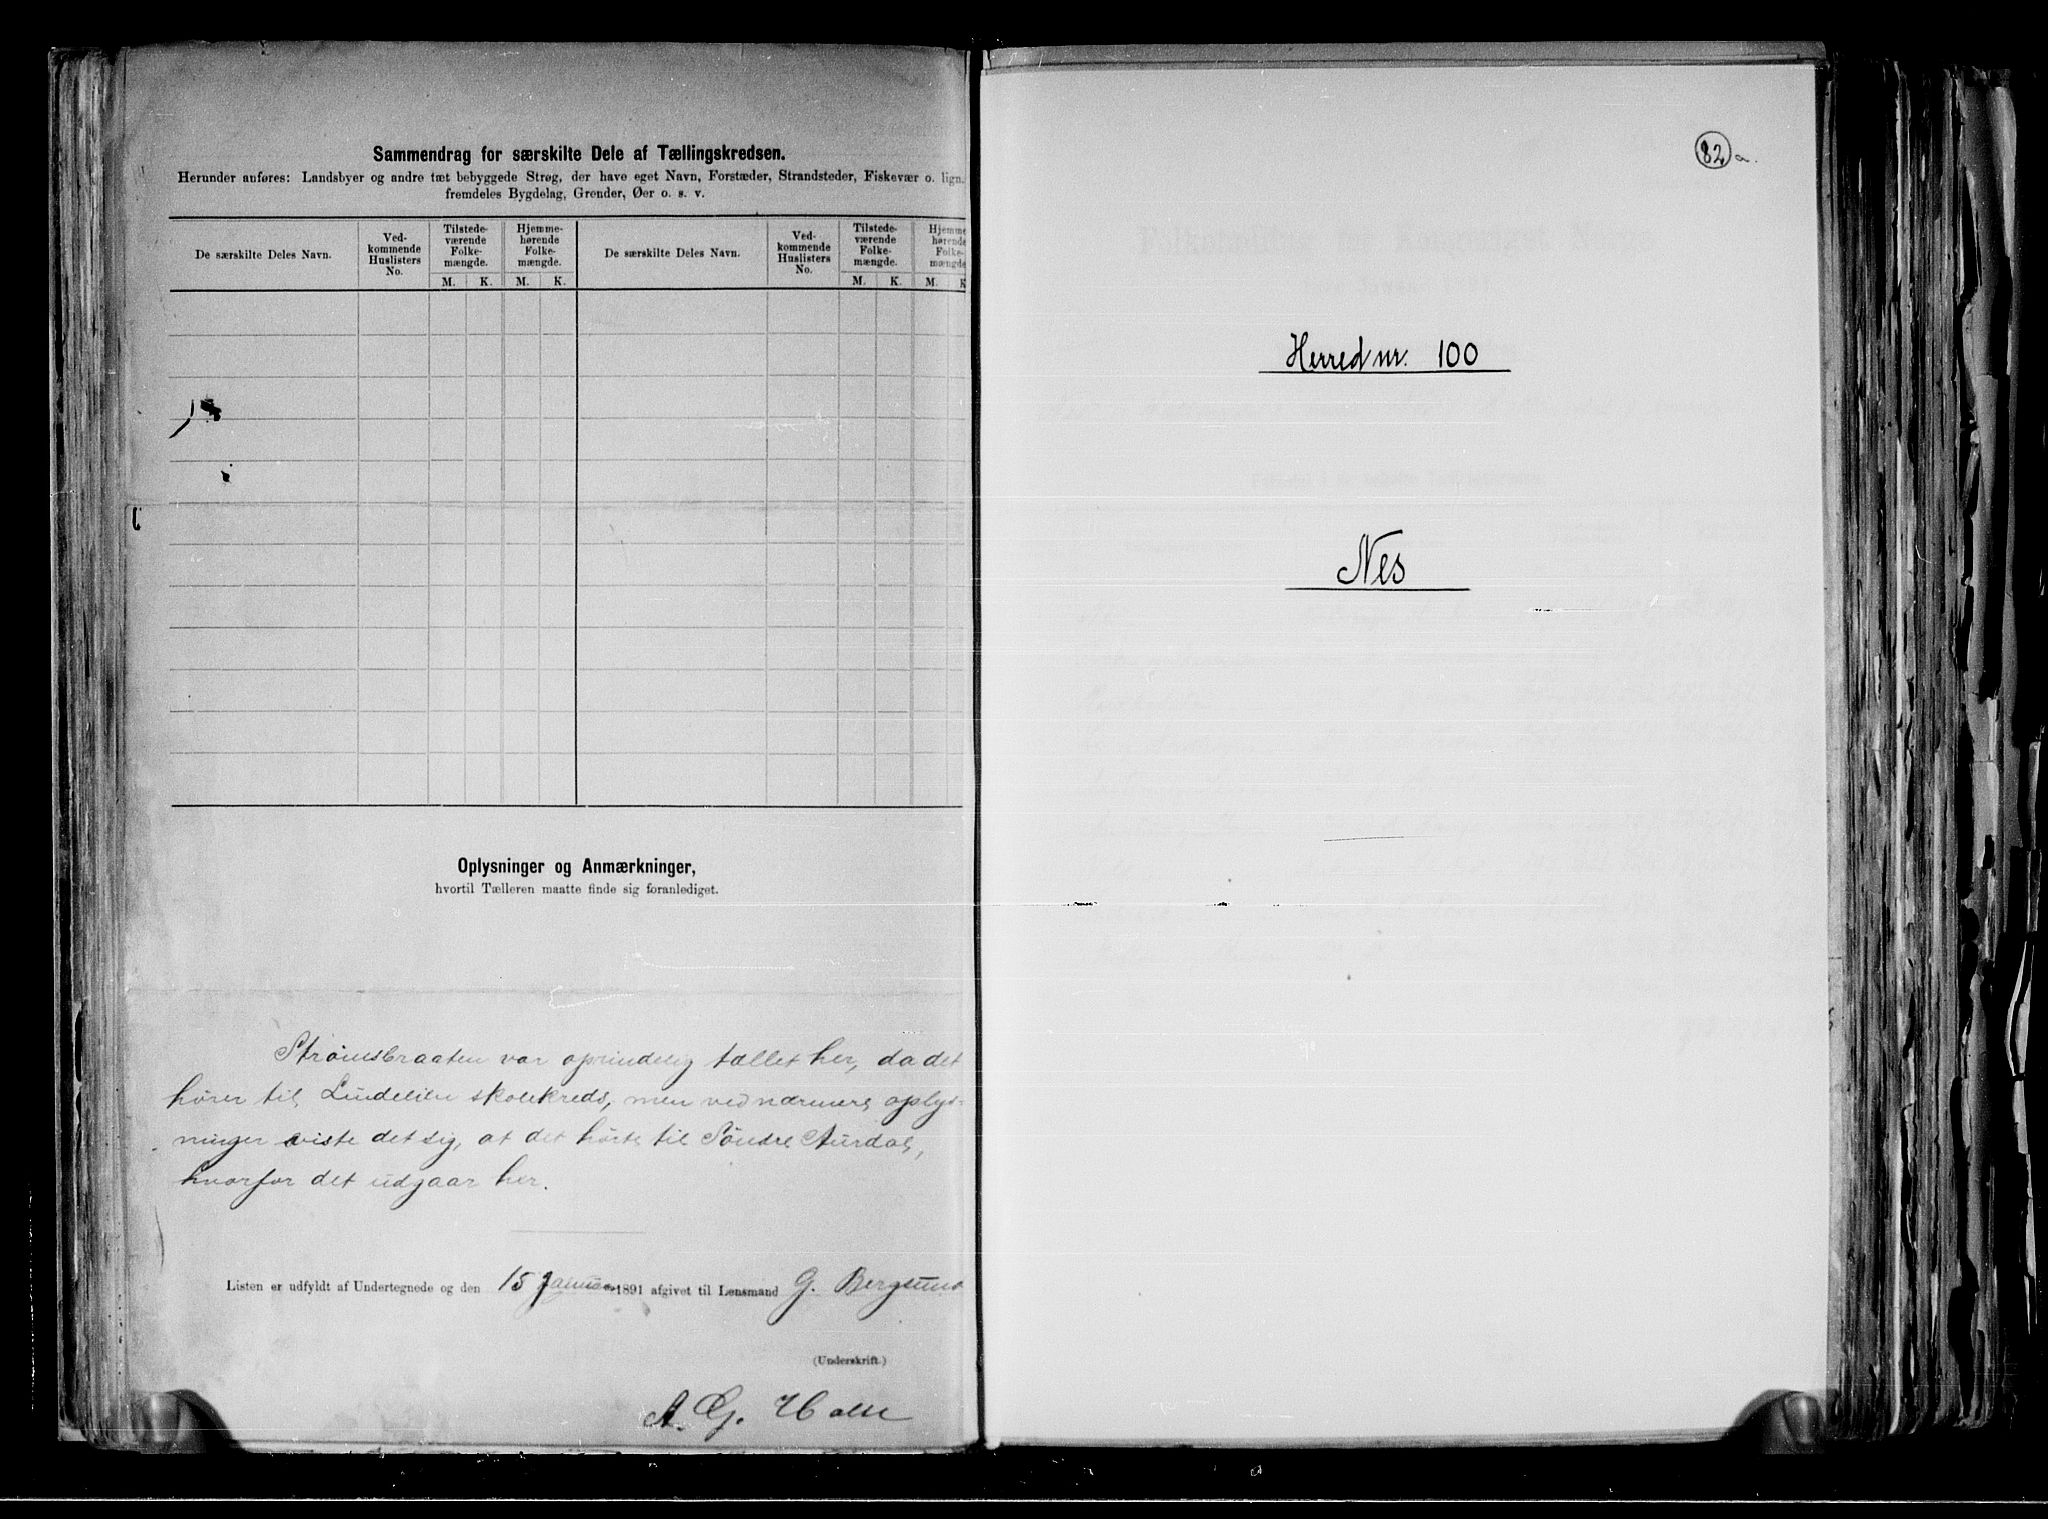 Sammendrag for særskilte Dele af Tællingskredsen.
Herunder anføres: Landsbyer og andre tæt bebyggede Strøg, der have eget Navn, Forstæder, Strandsteder, Fiskevær o. lign.
fremdeles Bygdelag, Grender, Øer o. s. v.
De særskilte Deles Navn.
Ved-
kommende
Huslisters
No.
Tilstede-
værende
Folke-
mængde.
M. K.
Hjemme-
hørende
Folke-
mængde.
M. K.
De særskilte Deles Navn.
Ved-
kommende
Huslisters
No.
Tilstede-
værende
Folke-
mængde.
M. K.
Hjemme
hørende
Folke-
mængde
M. K
Oplysninger og Anmærkninger,
hvortil Tælleren maatte finde sig foranlediget.
Strømsbraaten var oprindelig tællet her, da det
hører til Lindelien skolekreds, men ved nærmere oplys-
ninger viste det sig, at det hørte til Søndre Aurdal,
hvorfor det udgaar her.
Listen er udfyldt af Undertegnede og den 15 Januar 1891 afgivet til Lensmand G. Bergsund
(Underskrift.)
A. G. Halse
82 a.
Herred nr. 100
Nes